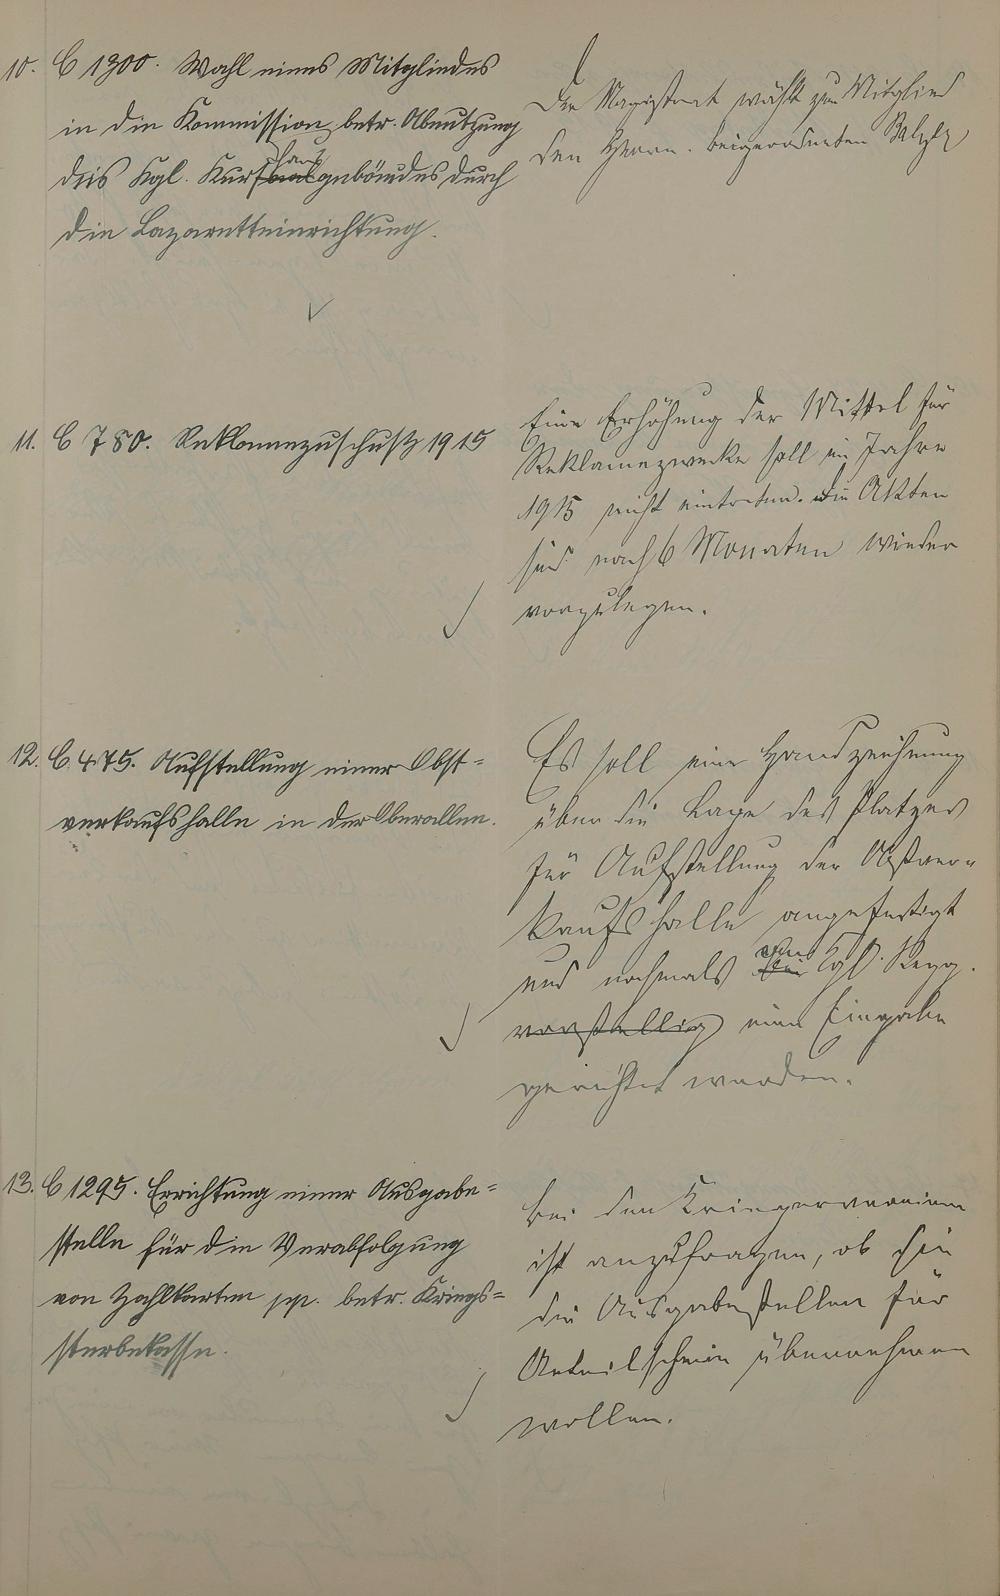 10. C 1300. Wahl eines Mitgliedes
in die Kommission, betr. Abnutzung
des Kgl. Kurhausgebäudes durch
die Lazaretteinrichtung.
Der Magistrat wählt zum Mitglied
den Herrn. Beigeordneten
11. C 780. Reklamezuschuß 1915
Eine Erhöhung der Mittel für
Reklamezwecke soll im Jahre
1915 nicht eintreten. Die Akten
sind nach 6 Monaten wieder
vorzulegen.
12. C. 475. Aufstellung einer Obst=
verkaufshalle in der Oberallee.
Es soll eine Handzeichnung
über die Lage des Platzes
für Aufstellung der Obstver-
kaufshalle angefertigt
und nochmals an Kgl. Regg.
vorstellig eine Eingabe
gerichtet werden.
13. C 1295. Errichtung einer Ausgabe=
stelle für die Verabfolgung
von Zahlkarten pp. betr. Kriegs=
sterbekasse.
bei den Kriegervereinen
ist anzufragen, ob sie
die Ausgabestellen für
Anteilscheine übernehmen
wollen.